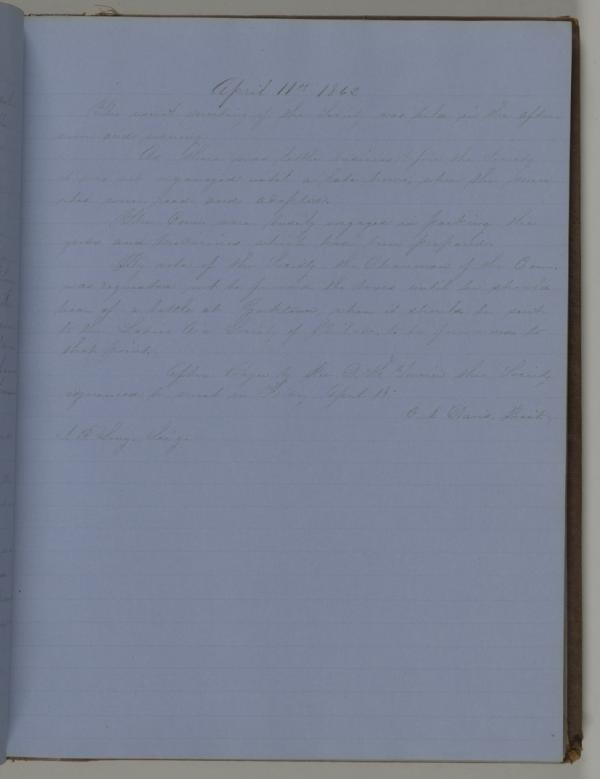 April 11th 1862
The usual meeting of the Society was held in the after
noon and evening.
As there was little business before the Society
it was not organized until a late hour, when the minu
utes were read and adopted.
The Com were busily engaged in packing the
goods and which had been prepared.
By vote of the Society the Chairman of the Com.
was requested not to forward the boxes until he should
hear of a battle at Yorktown, when it should be sent
to the Ladies Aid Society of Philada. to be forwarded to
that point.
After prayer by Rev. the Society
adjourned to meet on April 18
Davis, Presit.